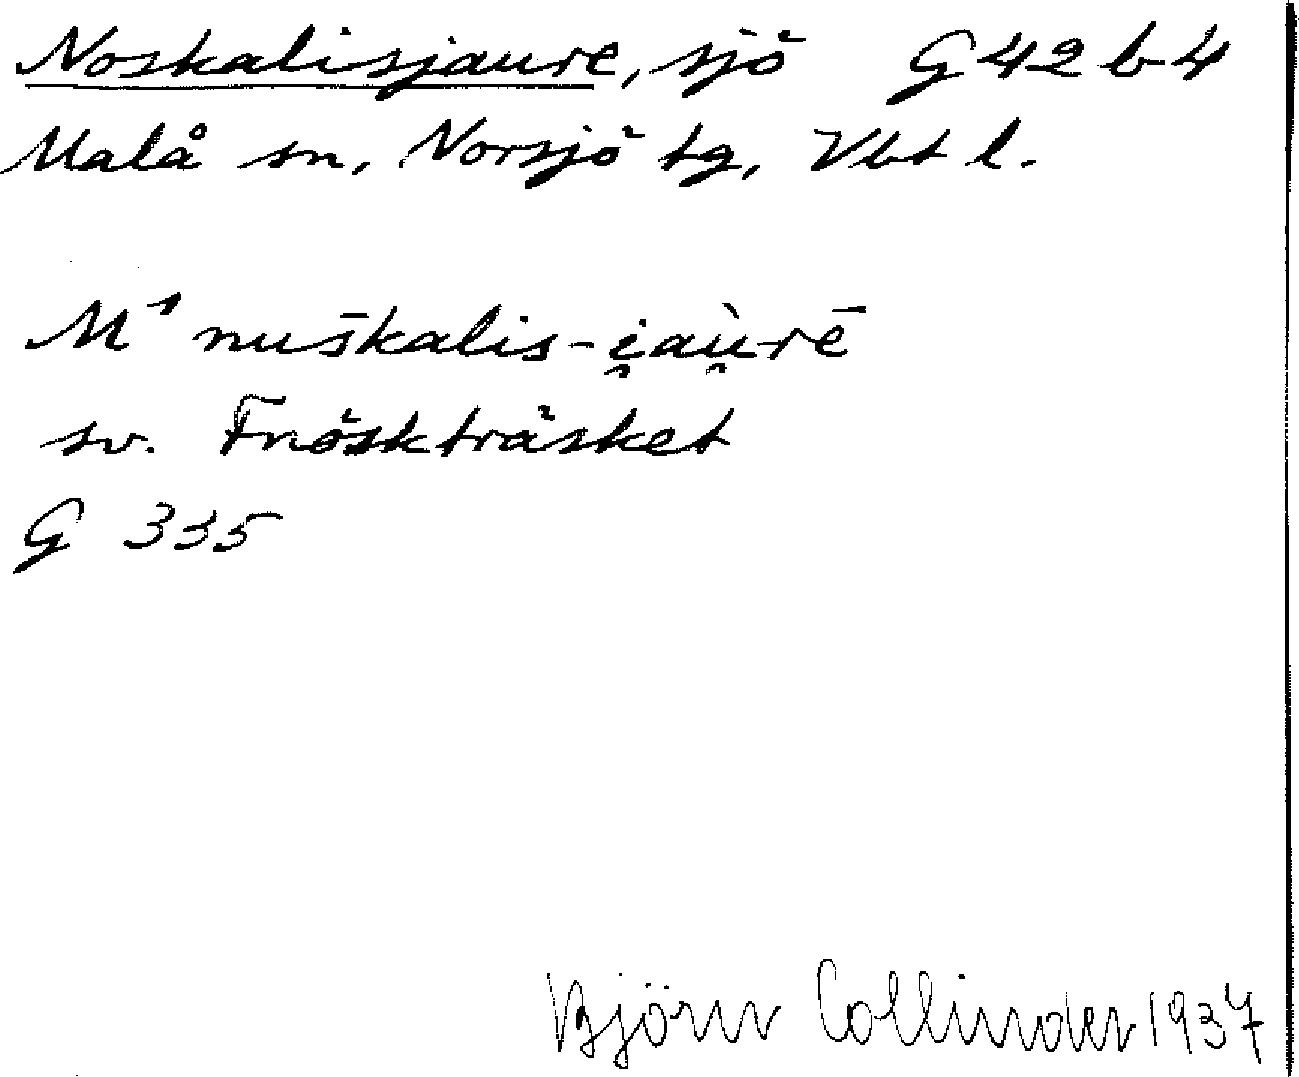 Noskalisjaure, sjö G 42 b 4
Malå sn, Norsjö tg, Vbt l.
M¹ nuškalis-i̯aù̯rē
sv. Fnöskträsket
G 335
Björn Collinder 1937